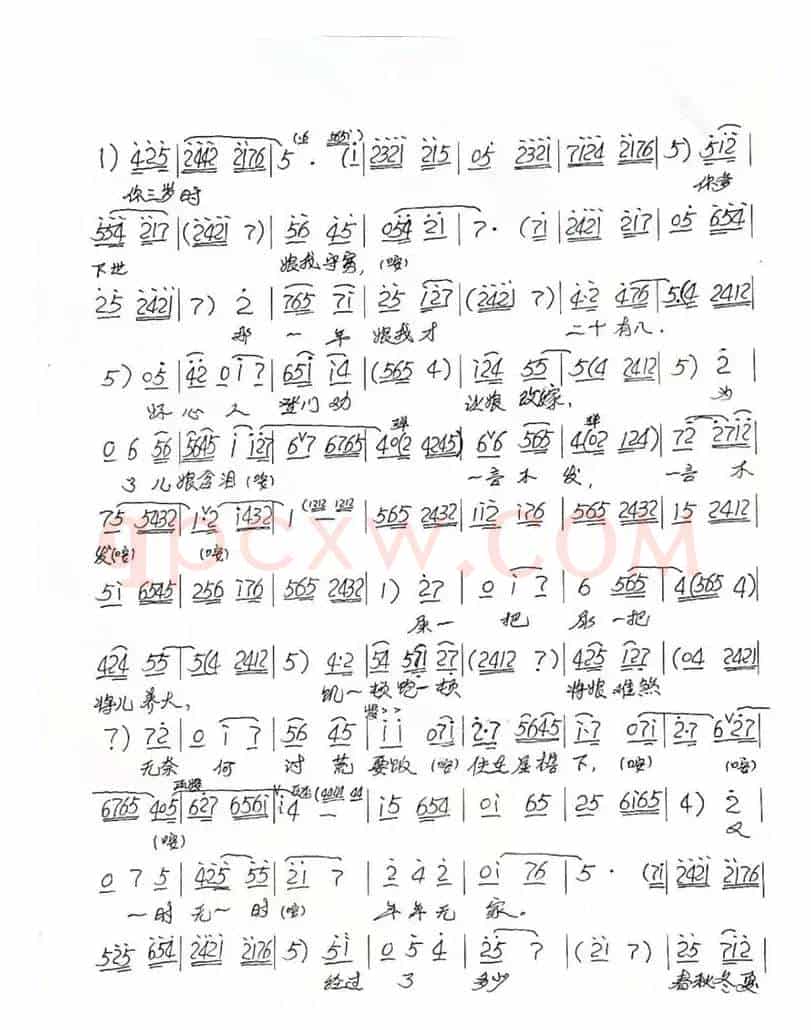 1) 425 | 2442 2176 | 5 · (1 | 2321 215 | 05 2321 | 7124 2176 | 5) 512 |
你三岁时 你爹
554 217 | (2421 7) | 56 45 | 054 21 | 7· (71 | 2421 217 | 05 654 |
下世 娘我守寡,(哎)
25 2421 | 7) 2 | 765 71 | 25 127 | (2421 7) | 4·2 476 | 5(4 2412 |
那一年娘我才 二十有八.
5) 05 | 42 017 | 651 14 | (565 4) | 124 55 | 5(4 2412 | 5) 2 |
坏心人 登门劝 让娘改嫁, 为
0 6 56 | 5645 1 127 | 6 7 6765 | 40(2 4245) | 6 6 565 | 4(02 124) | 72 2712 |
了儿娘含泪(哎) 一言不发, 一言不
75 5432 | 1·2 1432 | 1 (1212 1212 | 565 2432 | 112 1276 | 565 2432 | 15 2412 |
发(哎) (哎)
qpcxw.COM
51 6545 | 256 176 | 565 2432 | 1) 27 | 0 1 7 | 6 565 | 4(565 4) |
屎一把 尿一把
424 55 | 5(4 2412 | 5) 4·2 | 54 571 27 | (2412 7) | 425 127 | (04 2421 |
将儿养大, 饥一顿饱一顿 将娘难煞
7) 72 | 0 1 7 | 56 45 | 1 1 071 | 2·7 5645 | 1·7 071 | 2·7 6 27 |
无奈何 讨荒要饭(哎)住在屋檐下,(哎) (哎)
6765 405 | 627 6561 | 14 | 15 654 | 01 65 | 25 6165 | 4) 2 |
(哎) 又
0 7 5 | 425 55 | 21 7 | 2 4 2 | 01 76 | 5 · (71 | 2421 2176 |
一时无一时(哎) 年年无家.
525 654 | 2421 2176 | 5) 51 | 0 5 4 | 25 7 | (21 7) | 25 712 |
经过了多少 春秋冬夏